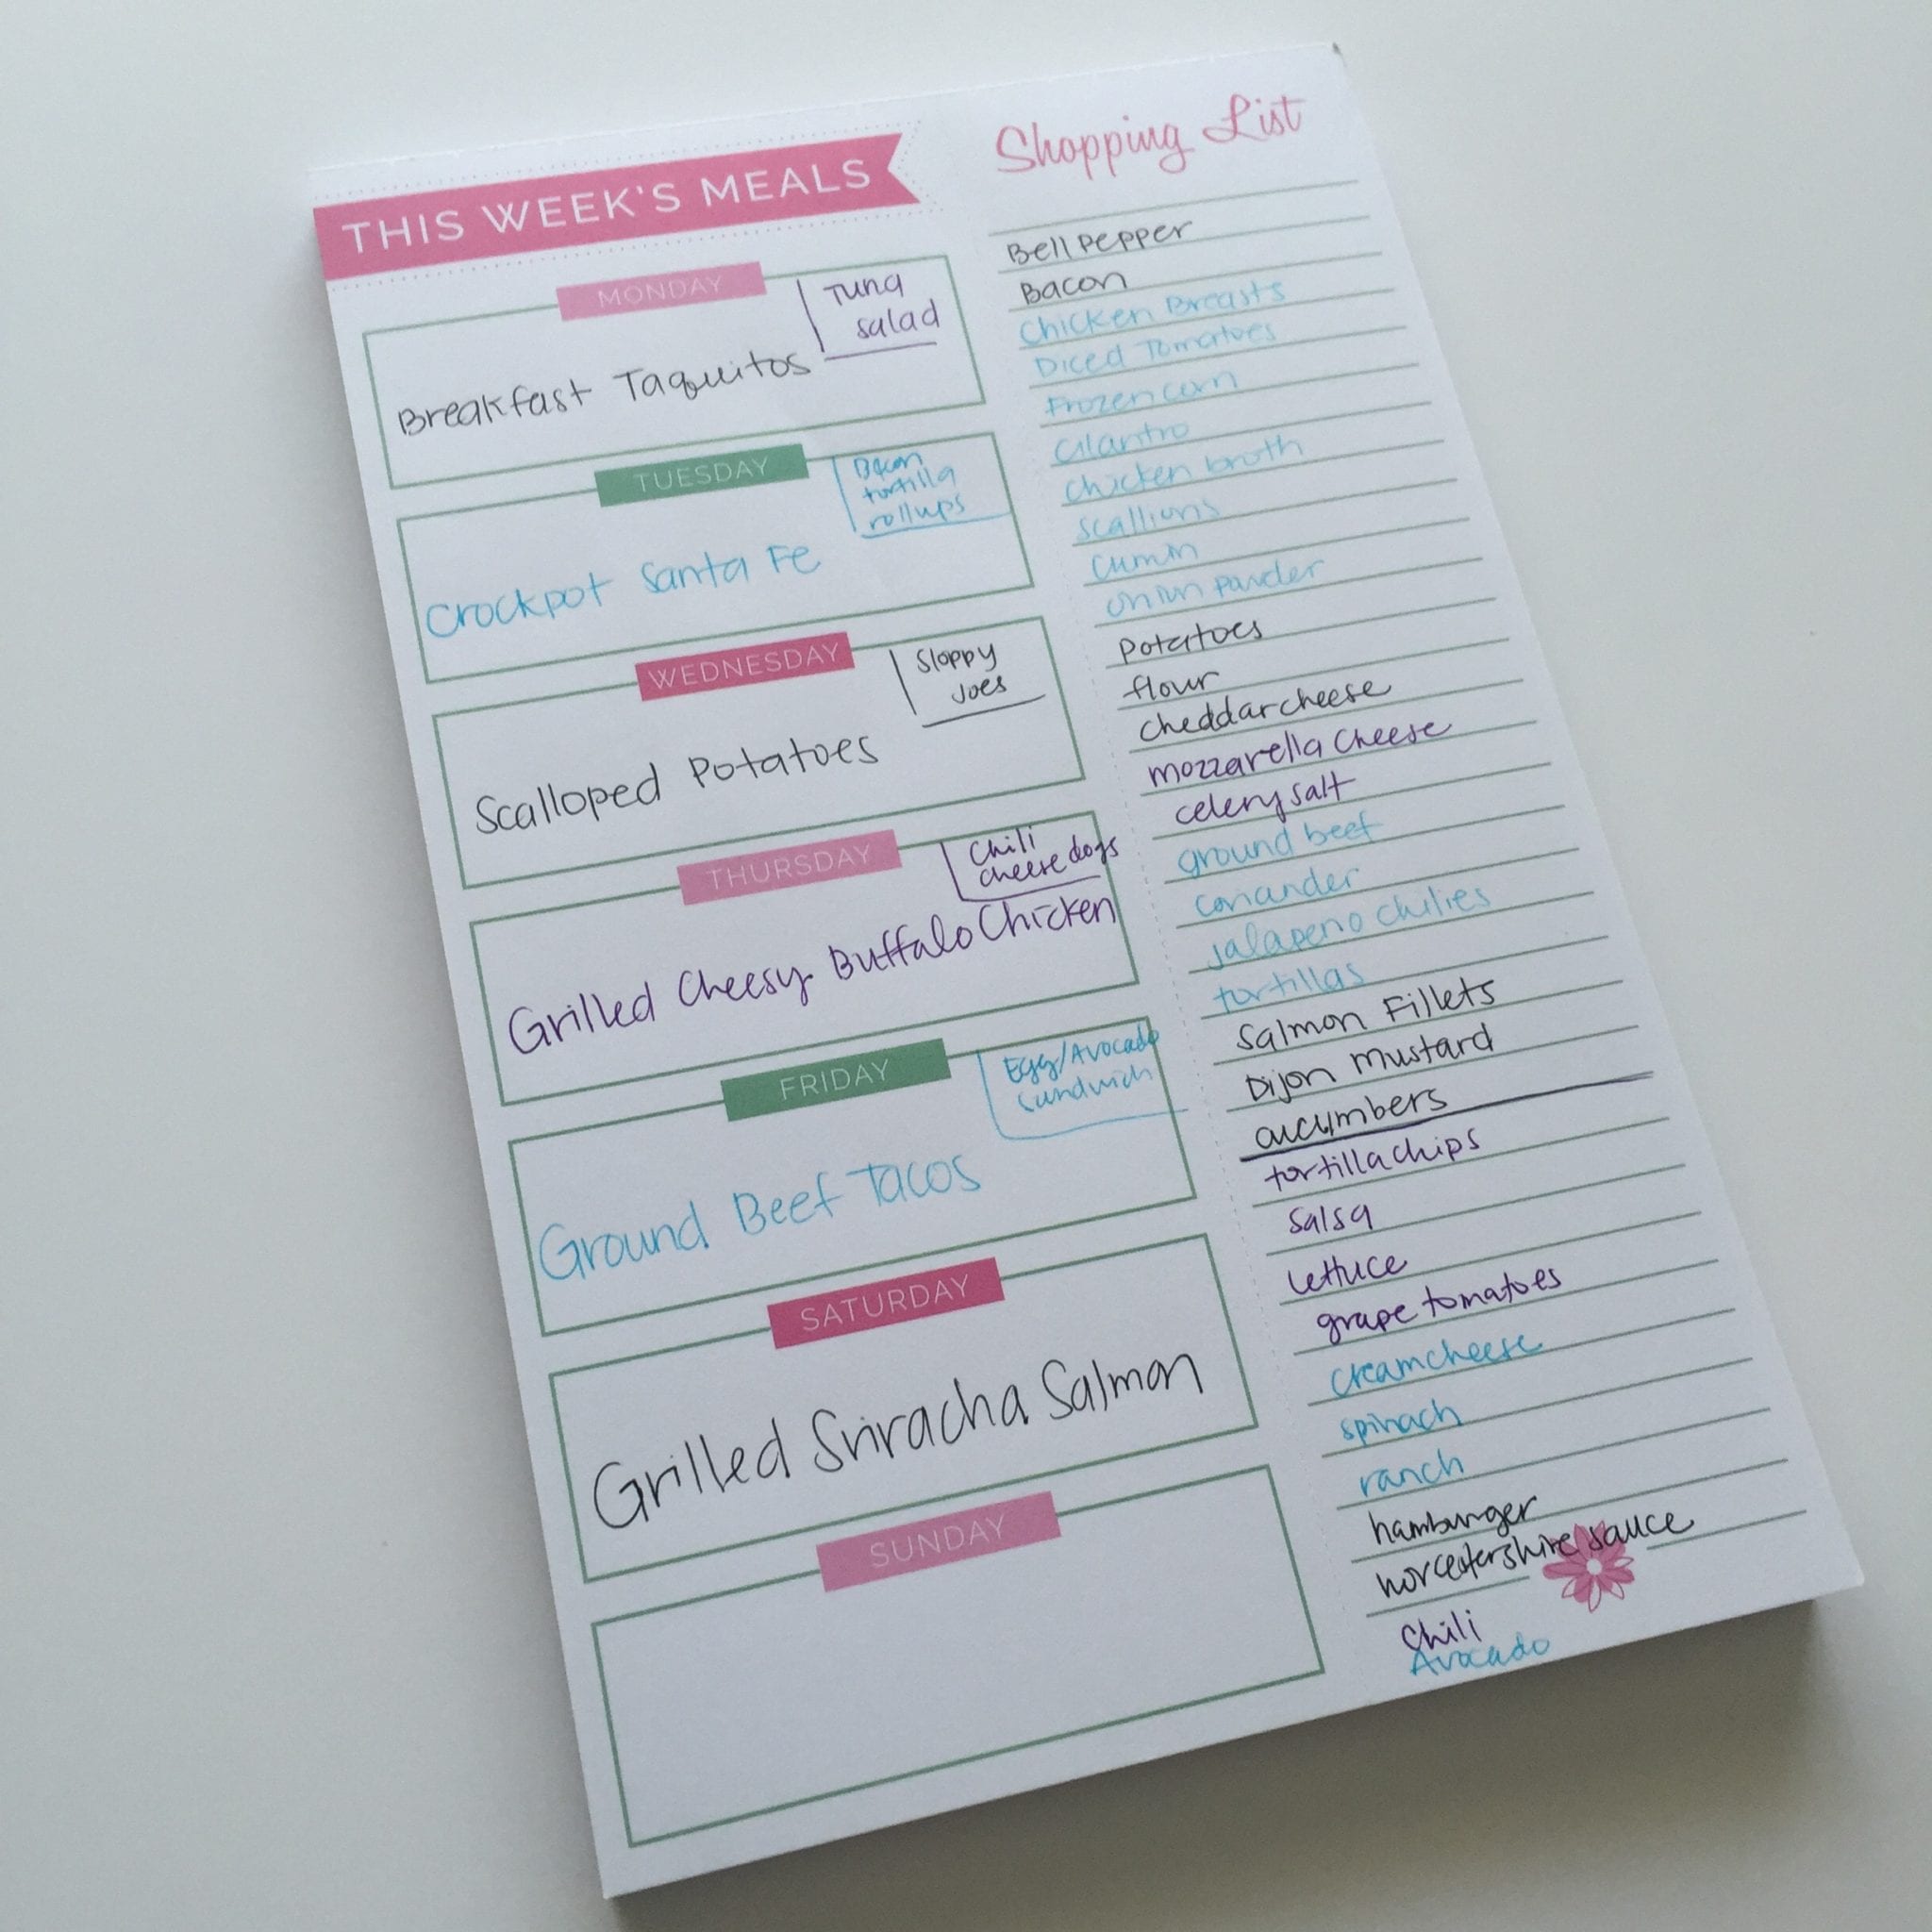 THIS WEEK'S MEALS
MONDAY
Tuna
salad
Breakfast Taquitos
TUESDAY
Bacon
tortilla
rollups
Crockpot Santa Fe
WEDNESDAY
Sloppy
Joes
Scalloped Potatoes
THURSDAY
Chili
cheese dogs
Grilled Cheesy Buffalo Chicken
FRIDAY
Egg/Avocado
sandwich
Ground Beef Tacos
SATURDAY
Grilled Sriracha Salmon
SUNDAY
Shopping List
Bell Pepper
Bacon
Chicken Breasts
Diced Tomatoes
Frozen corn
Cilantro
chicken broth
scallions
cumin
onion powder
Potatoes
flour
cheddar cheese
mozzarella cheese
celery salt
ground beef
coriander
jalapeno chilies
tortillas
Salmon Fillets
Dijon mustard
cucumbers
tortilla chips
salsa
lettuce
grape tomatoes
cream cheese
spinach
ranch
hamburger
worcestershire sauce
Chili
Avocado